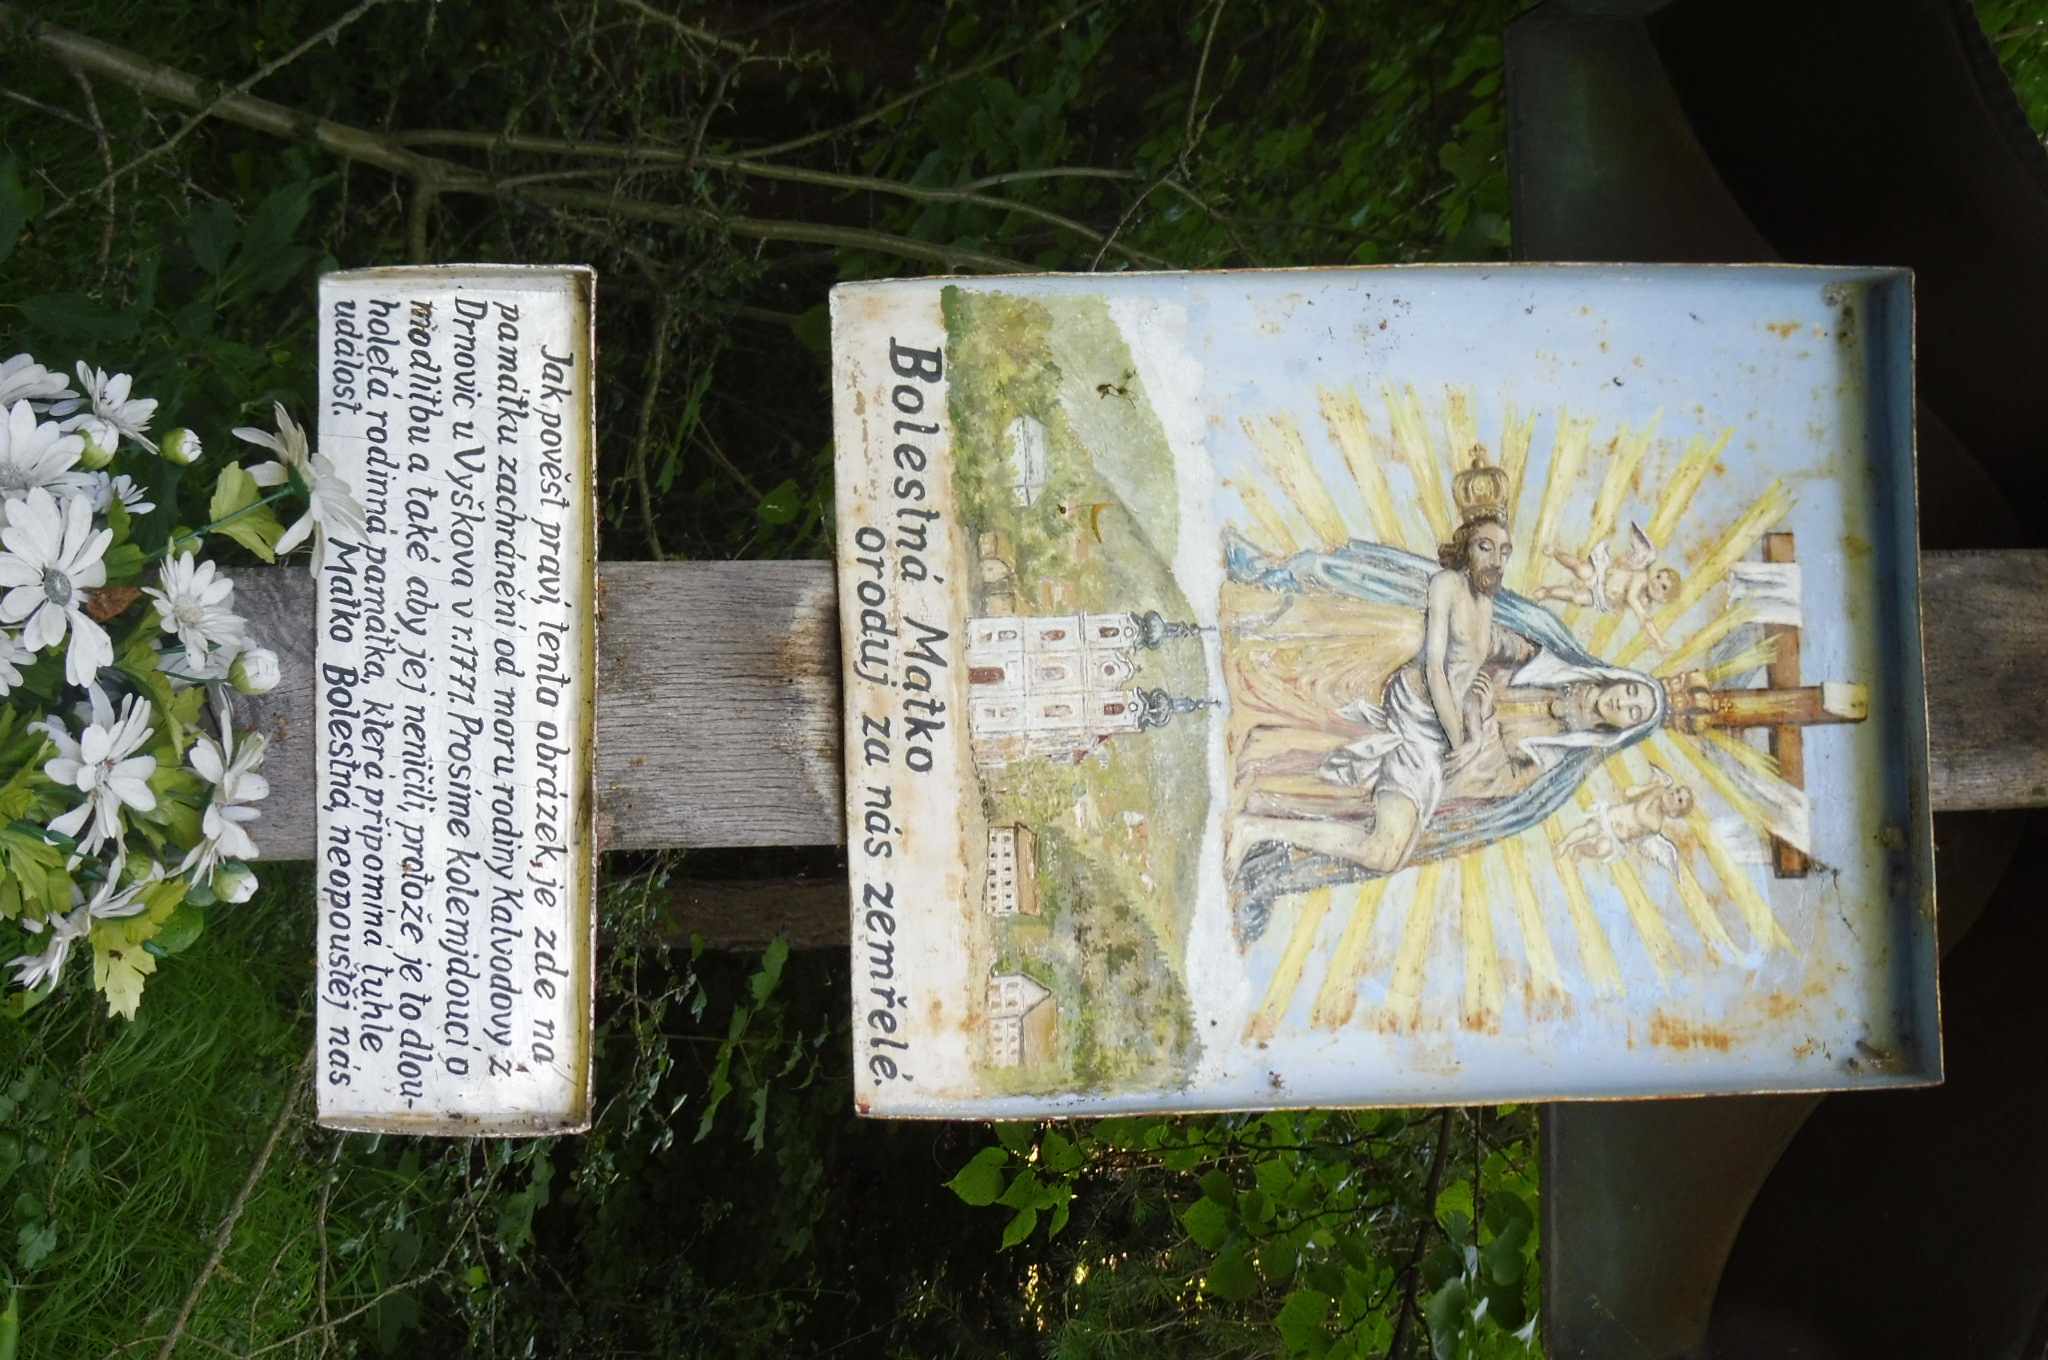 Bolestná Matko
oroduj za nás zemřelé.
Jak pověst praví, tento obrázek, je zde na
památku zachránění od moru rodiny Kalvodovy z
Drnovic u Vyškova v r. 1771. Prosíme kolemjdoucí o
modlitbu a také aby jej neničili, protože je to dlou-
holetá rodinná památka, která připomíná tuhle
událost. Matko Bolestná, neopouštěj nás